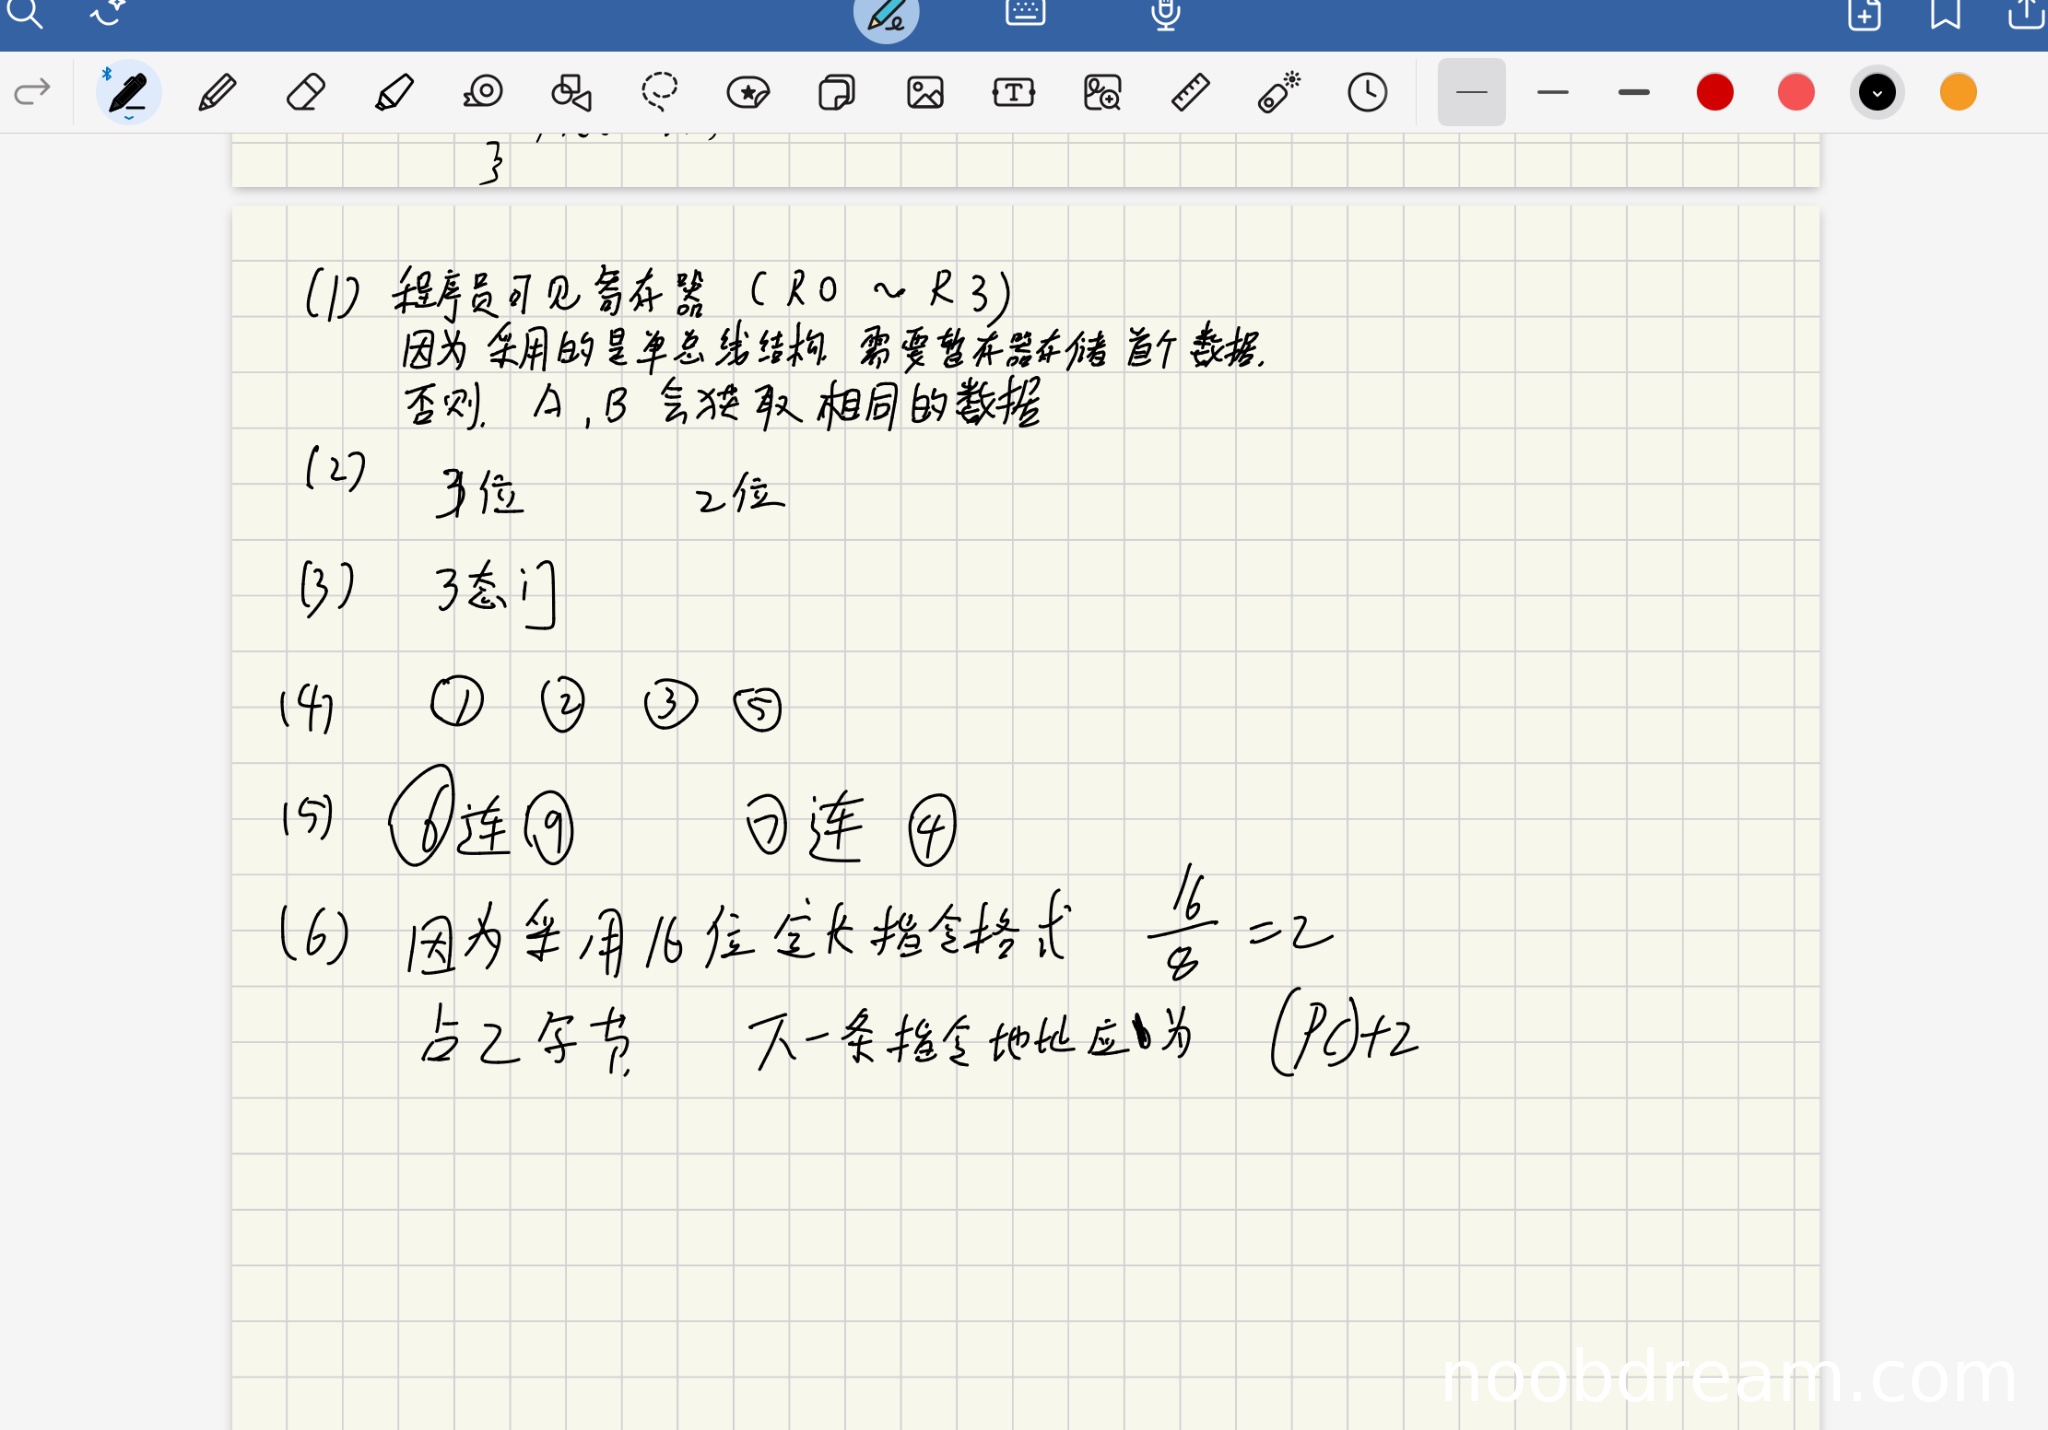 }
(1) 程序员可见寄存器 (R0 ~ R3)
因为采用的是单总线结构 需要暂存器存储首个数据.
否则. A,B 会获取相同的数据
(2) 3位 2位
(3) 3态门
(4) ① ② ③ ⑤
(5) ⑥连⑨ ⑦连④
(6) 因为采用16位定长指令格式 16/8 =2
占2字节. 下一条指令地址应为 (PC)+2
noobdream.com